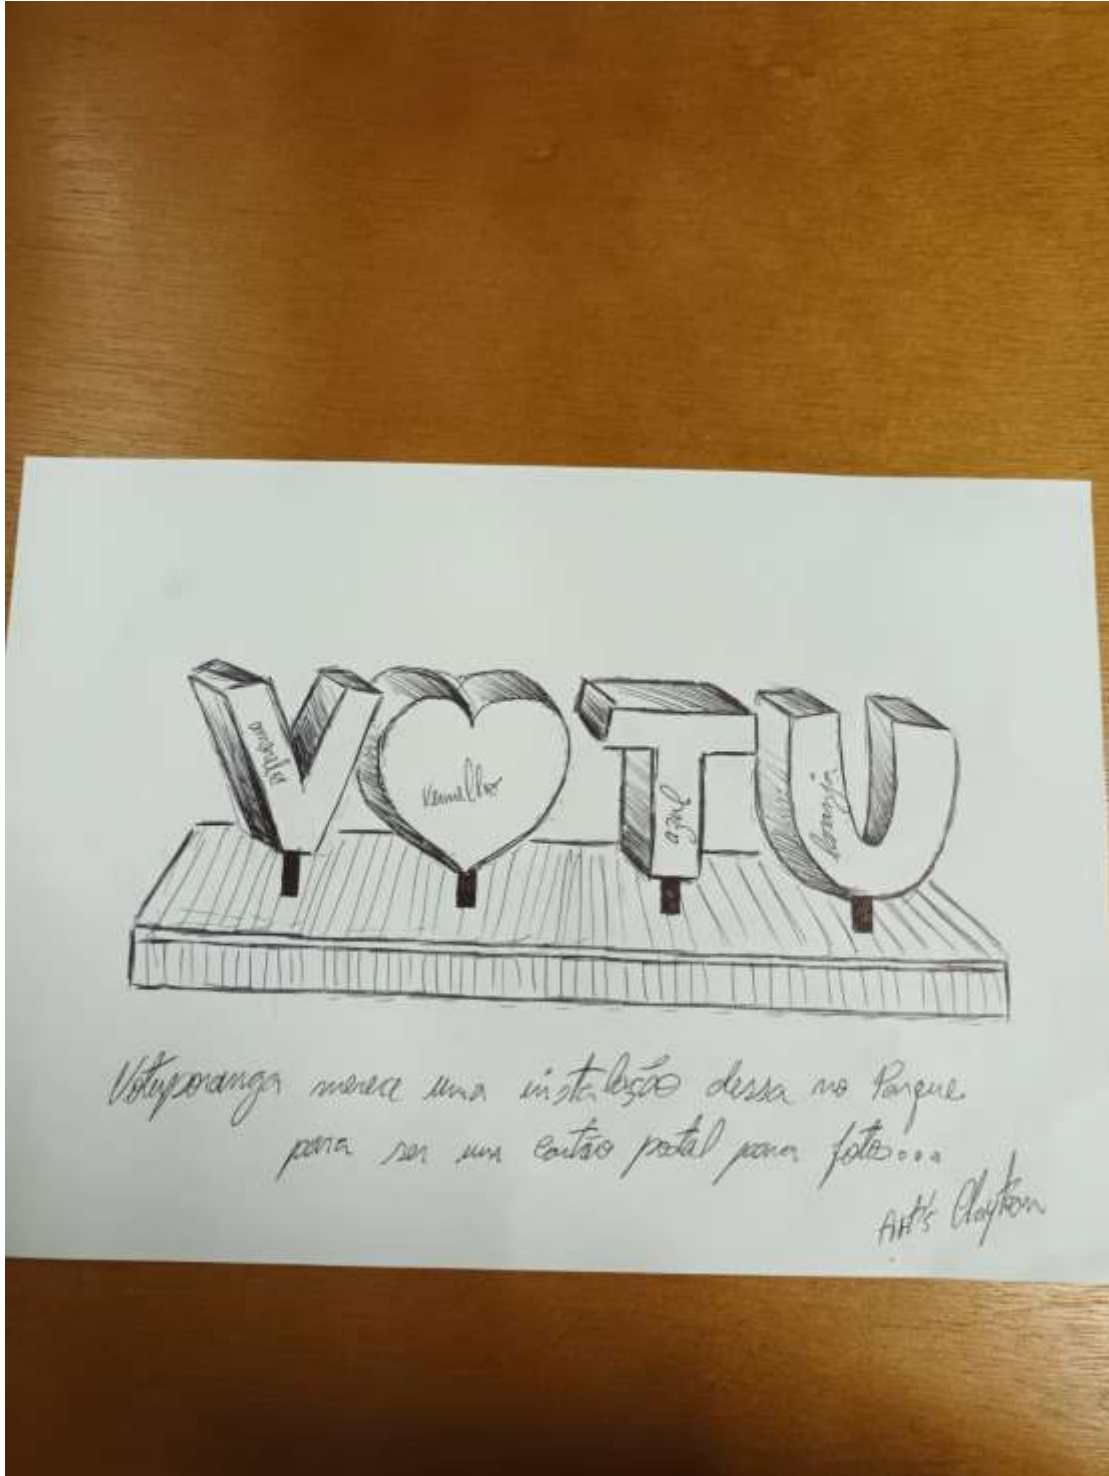 V♥TU
amarelo
Vermelho
azul
laranja
Votuporanga merece uma instalação dessa no Parque
para ser um cartão postal para fotos...
Art's Clayton